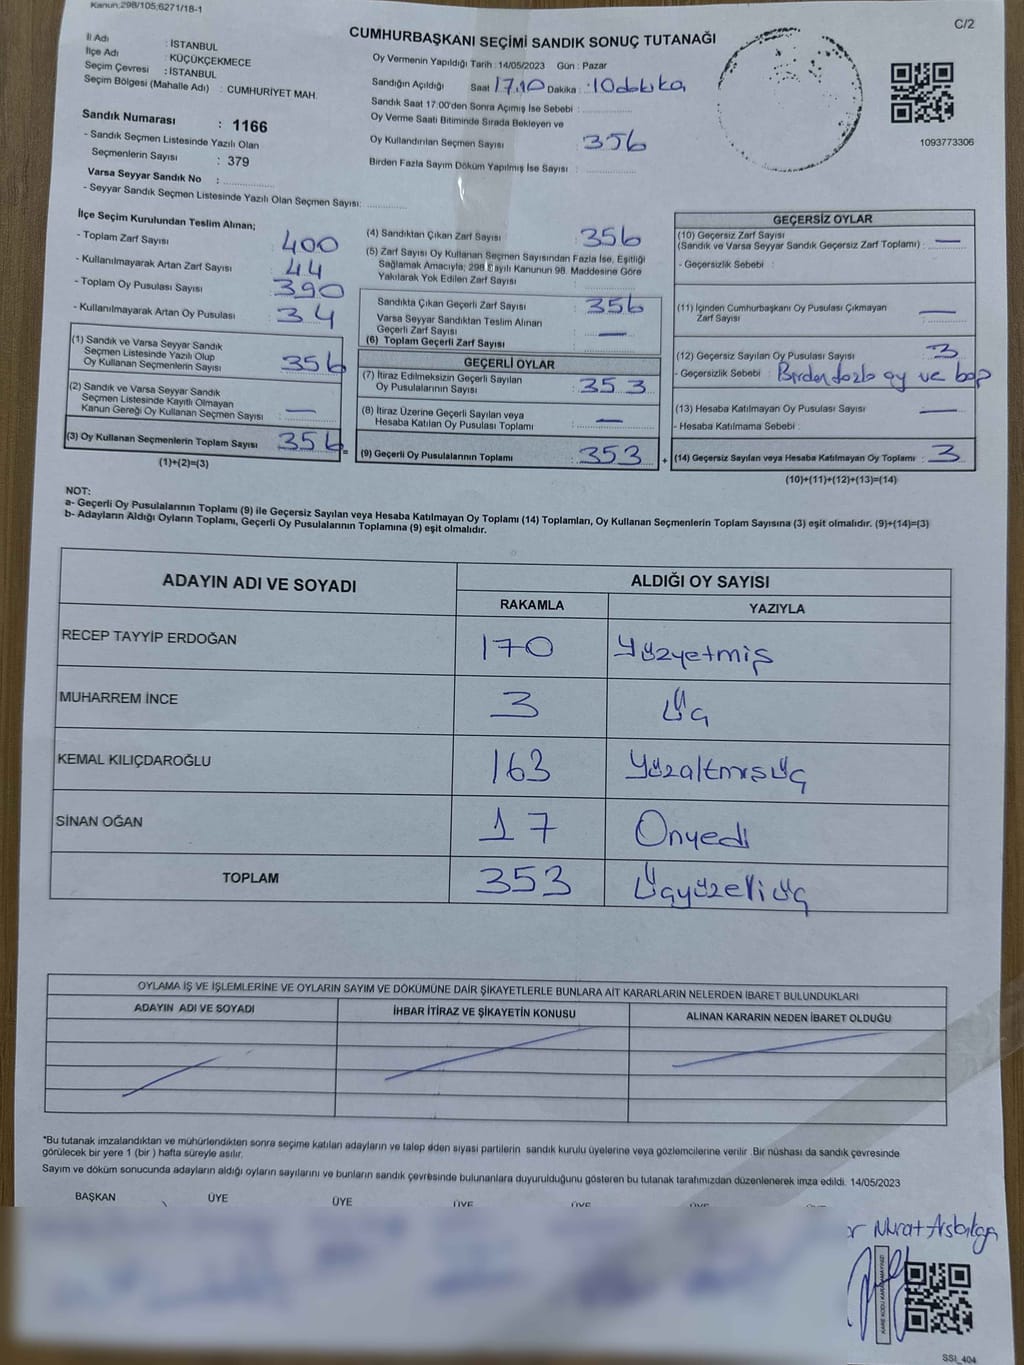 Kanun;298/105;6271/18-1
C/2
CUMHURBAŞKANI SEÇİMİ SANDIK SONUÇ TUTANAĞI
İl Adı : İSTANBUL
İlçe Adı : KÜÇÜKÇEKMECE
Seçim Çevresi : İSTANBUL
Seçim Bölgesi (Mahalle Adı) : CUMHURİYET MAH.
Oy Vermenin Yapıldığı Tarih :14/05/2023 Gün : Pazar
Sandığın Açıldığı Saat 17,10 Dakika : 10 dakika
Sandık Saat 17:00'den Sonra Açımış İse Sebebi :
Oy Verme Saati Bitiminde Sırada Bekleyen ve
Oy Kullandırılan Seçmen Sayısı : 356
Birden Fazla Sayım Döküm Yapılmış İse Sayısı :
1093773306
Sandık Numarası : 1166
- Sandık Seçmen Listesinde Yazılı Olan
Seçmenlerin Sayısı : 379
Varsa Seyyar Sandık No :
- Seyyar Sandık Seçmen Listesinde Yazılı Olan Seçmen Sayısı:
İlçe Seçim Kurulundan Teslim Alınan;
- Toplam Zarf Sayısı : 400
- Kullanılmayarak Artan Zarf Sayısı : 44
- Toplam Oy Pusulası Sayısı : 390
- Kullanılmayarak Artan Oy Pusulası : 34
(1) Sandık ve Varsa Seyyar Sandık
Seçmen Listesinde Yazılı Olup
Oy Kullanan Seçmenlerin Sayısı : 356
(2) Sandık ve Varsa Seyyar Sandık
Seçmen Listesinde Kayıtlı Olmayan
Kanun Gereği Oy Kullanan Seçmen Sayısı : —
(3) Oy Kullanan Seçmenlerin Toplam Sayısı : 356
(1)+(2)=(3)
=
(4) Sandıktan Çıkan Zarf Sayısı : 356
(5) Zarf Sayısı Oy Kullanan Seçmen Sayısından Fazla İse, Eşitliği
Sağlamak Amacıyla; 298 Sayılı Kanunun 98. Maddesine Göre
Yakılarak Yok Edilen Zarf Sayısı :
Sandıkta Çıkan Geçerli Zarf Sayısı : 356
Varsa Seyyar Sandıktan Teslim Alınan
Geçerli Zarf Sayısı : —
(6) Toplam Geçerli Zarf Sayısı :
GEÇERLİ OYLAR
(7) İtiraz Edilmeksizin Geçerli Sayılan
Oy Pusulalarının Sayısı : 353
(8) İtiraz Üzerine Geçerli Sayılan veya
Hesaba Katılan Oy Pusulası Toplamı : —
(9) Geçerli Oy Pusulalarının Toplamı : 353
+
GEÇERSİZ OYLAR
(10) Geçersiz Zarf Sayısı
(Sandık ve Varsa Seyyar Sandık Geçersiz Zarf Toplamı) : —
- Geçersizlik Sebebi :
(11) İçinden Cumhurbaşkanı Oy Pusulası Çıkmayan
Zarf Sayısı : —
(12) Geçersiz Sayılan Oy Pusulası Sayısı : 3
- Geçersizlik Sebebi : Birden fazla oy ve boş
(13) Hesaba Katılmayan Oy Pusulası Sayısı : —
- Hesaba Katılmama Sebebi :
(14) Geçersiz Sayılan veya Hesaba Katılmayan Oy Toplamı : 3
(10)+(11)+(12)+(13)=(14)
NOT:
a- Geçerli Oy Pusulalarının Toplamı (9) ile Geçersiz Sayılan veya Hesaba Katılmayan Oy Toplamı (14) Toplamları, Oy Kullanan Seçmenlerin Toplam Sayısına (3) eşit olmalıdır. (9)+(14)=(3)
b- Adayların Aldığı Oyların Toplamı, Geçerli Oy Pusulalarının Toplamına (9) eşit olmalıdır.
ADAYIN ADI VE SOYADI
ALDIĞI OY SAYISI
RAKAMLA YAZIYLA
RECEP TAYYİP ERDOĞAN 170 Yüzyetmiş
MUHARREM İNCE 3 Üç
KEMAL KILIÇDAROĞLU 163 Yüzaltmışüç
SİNAN OĞAN 17 Onyedi
TOPLAM 353 Üçyüzelliüç
OYLAMA İŞ VE İŞLEMLERİNE VE OYLARIN SAYIM VE DÖKÜMÜNE DAİR ŞİKAYETLERLE BUNLARA AİT KARARLARIN NELERDEN İBARET BULUNDUKLARI
ADAYIN ADI VE SOYADI
İHBAR İTİRAZ VE ŞİKAYETİN KONUSU
ALINAN KARARIN NEDEN İBARET OLDUĞU
*Bu tutanak imzalandıktan ve mühürlendikten sonra seçime katılan adayların ve talep eden siyasi partilerin sandık kurulu üyelerine veya gözlemcilerine verilir. Bir nüshası da sandık çevresinde
görülecek bir yere 1 (bir ) hafta süreyle asılır.
Sayım ve döküm sonucunda adayların aldığı oyların sayılarını ve bunların sandık çevresinde bulunanlara duyurulduğunu gösteren bu tutanak tarafımızdan düzenlenerek imza edildi. 14/05/2023
BAŞKAN ÜYE ÜYE ÜYE ÜYE ÜYE
SSI_404